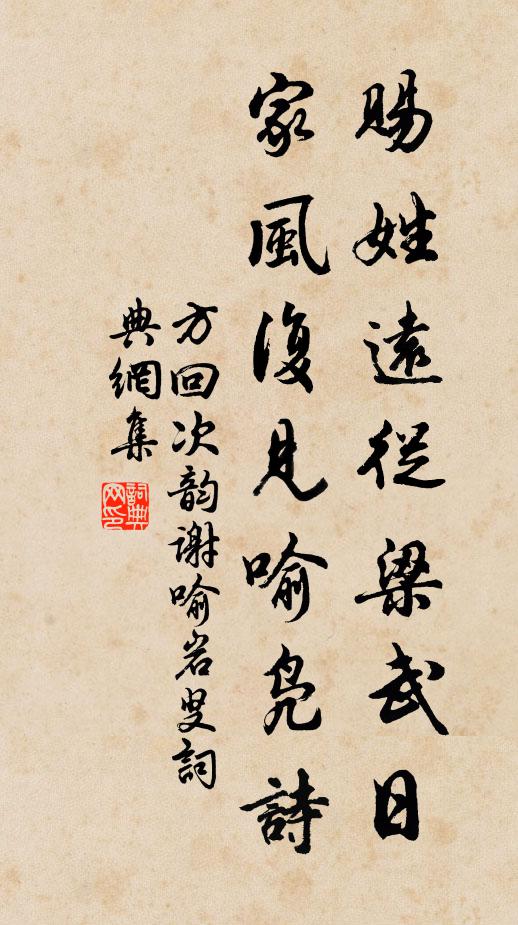 賜姓遠從梁武日
家風復見喻凫詩
方回次韵谢喻岩叟詞
典網集
詞典网印